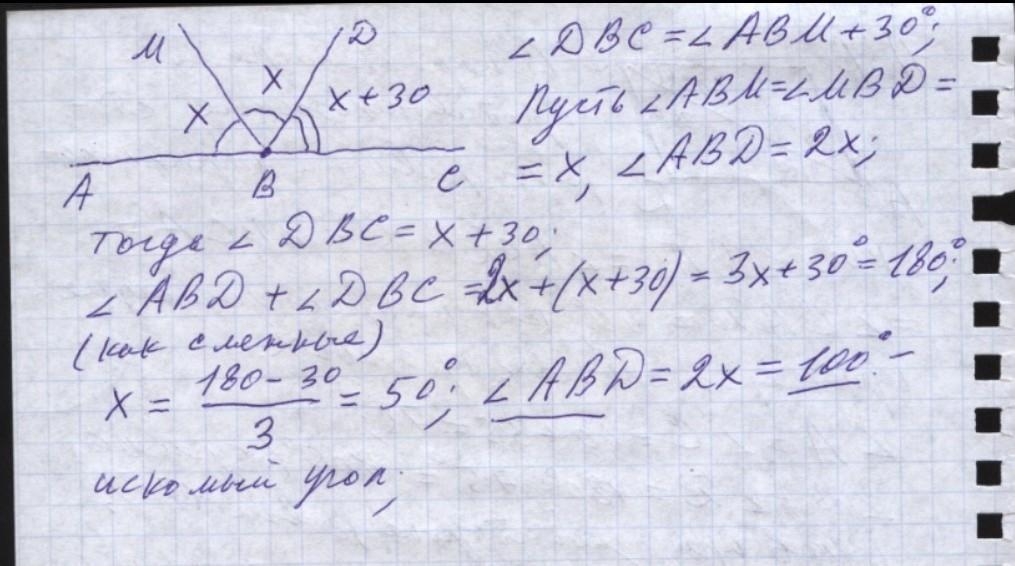 M
D
X
X
X + 30
A
B
C
∠ DBC = ∠ ABM + 30°;
Пусть ∠ ABM = ∠ MBD =
= X, ∠ ABD = 2x;
тогда ∠ DBC = X + 30;
∠ ABD + ∠ DBC = 2x + (x+30) = 3x + 30° = 180°;
(как смежные)
X = (180 - 30)/3 = 50°; ∠ ABD = 2x = 100° -
искомый угол;